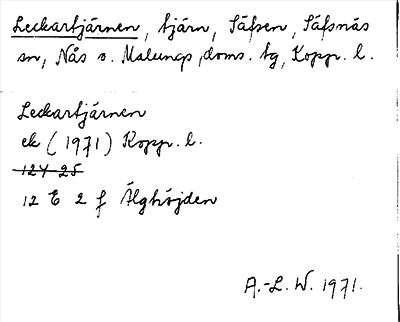 Leckartjärnen, tjärn, Säfsen, Säfsnäs
sn, Nås o. Malungs doms. tg, Kopp. l.
Leckartjärnen
ek (1971) Kopp. l.
124 25
12 E 2 f Älghöjden
A.-L. W. 1971.